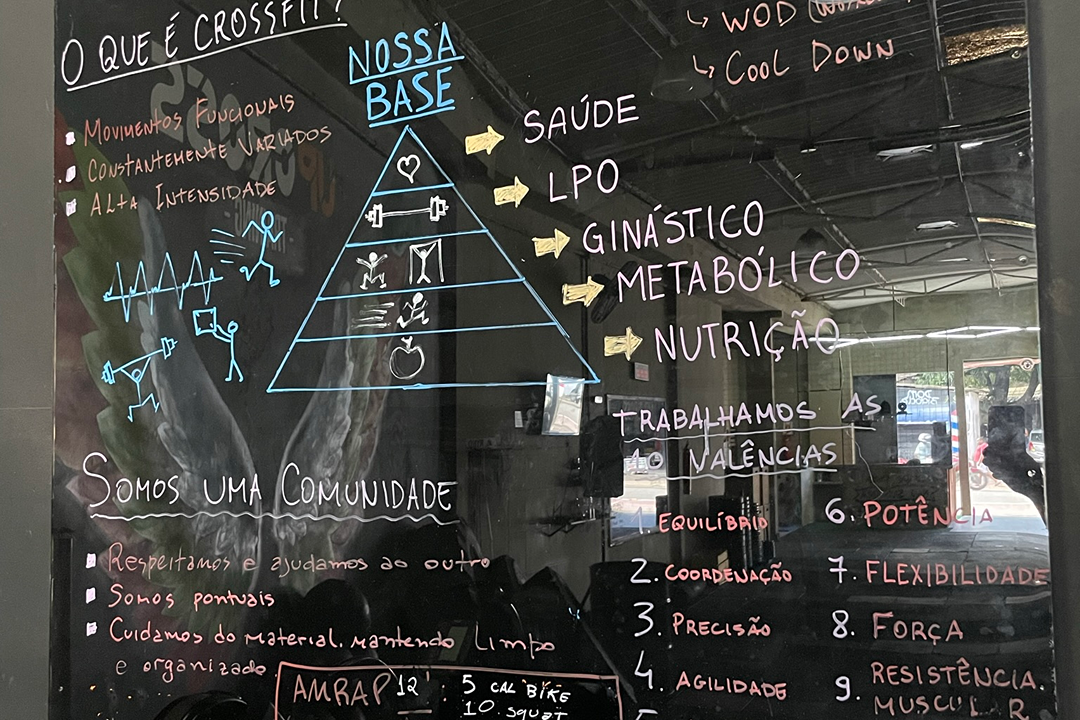 O QUE É CROSSFIT?
MOVIMENTOS FUNCIONAIS
CONSTANTEMENTE VARIADOS
ALTA INTENSIDADE
NOSSA
BASE
WOD
COOL DOWN
SAÚDE
LPO
GINÁSTICO
METABÓLICO
NUTRIÇÃO
SOMOS UMA COMUNIDADE
Respeitamos e ajudamos ao outro
Somos pontuais
Cuidamos do material. mantendo limpo
e organizado
AMRAP 12' : 5 CAL BIKE
10. SQUAT
TRABALHAMOS AS
10 VALÊNCIAS
1. EQUILÍBRIO
2. COORDENAÇÃO
3. PRECISÃO
4. AGILIDADE
5
6. POTÊNCIA
7. FLEXIBILIDADE
8. FORÇA
9. RESISTÊNCIA